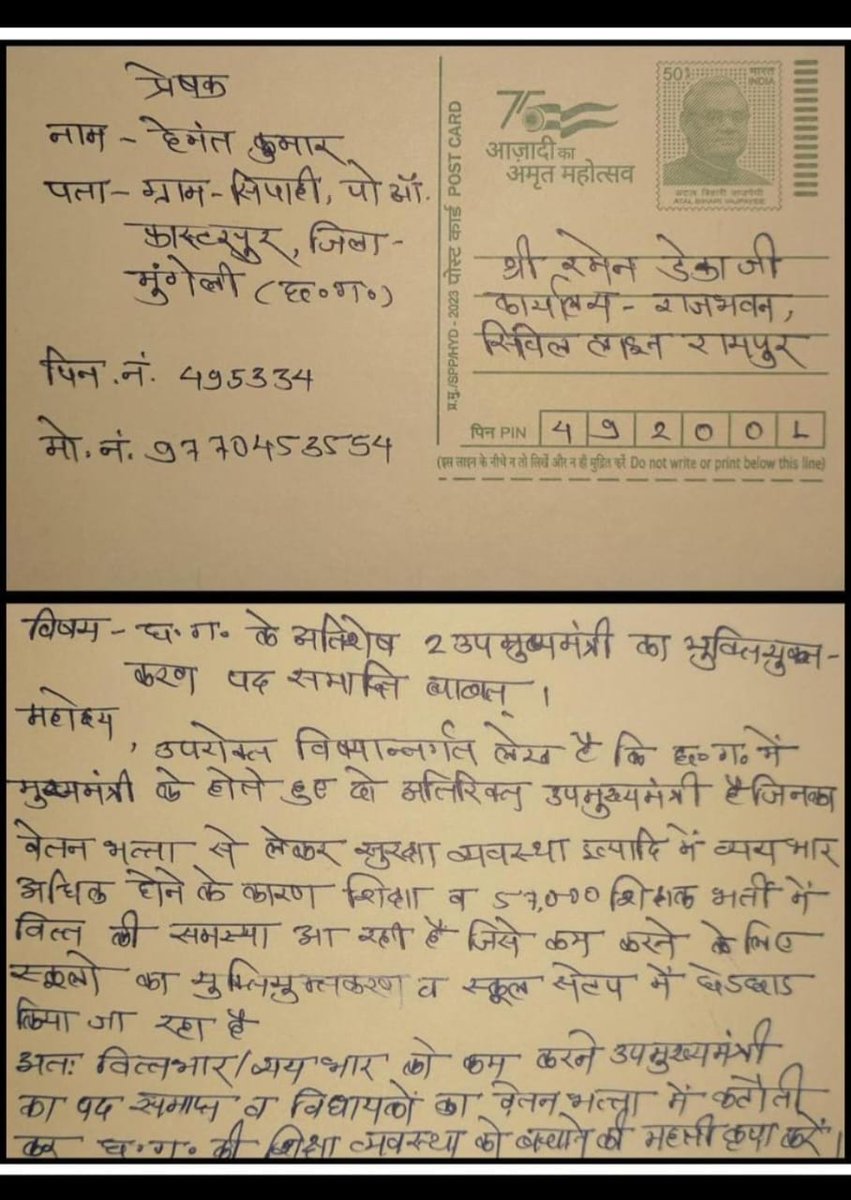 प्रेषक
नाम - हेमंत कुमार
पता - ग्राम - सिपाही, पो ऑ.
फास्टरपुर, जिला -
मुंगेली (छ०ग०)
पिन.नं. 495334
मो.नं. 9770453554
प्र.मु./SPP/HYD - 2023 पोस्ट कार्ड POST CARD
75
आज़ादी का
अमृत महोत्सव
50
भारत
INDIA
अटल बिहारी वाजपेयी
ATAL BIHARI VAJPAYEE
श्री रमेन डेका जी
कार्यालय - राजभवन,
सिविल लाइन रायपुर
पिन PIN 4 9 2 0 0 1
(इस लाइन के नीचे न तो लिखें और न ही मुद्रित करें Do not write or print below this line)
विषय - छ.ग. के अतिशेष 2 उपमुख्यमंत्री का युक्तियुक्त-
करण पद समाप्ति बाबत् ।
महोदय
, उपरोक्त विषयान्तर्गत लेख है कि छ०ग० में
मुख्यमंत्री के होते हुए दो अतिरिक्त उपमुख्यमंत्री है जिनका
वेतन भत्ता से लेकर सुरक्षा व्यवस्था इत्यादि में व्यय भार
अधिक होने के कारण शिक्षा व 57,000 शिक्षक भर्ती में
वित्त की समस्या आ रही है जिसे कम करने के लिए
स्कूलो का युक्तियुक्तकरण व स्कूल सेटप में छेडछाड
किया जा रहा है
अतः वित्तभार/व्यय भार को कम करने उपमुख्यमंत्री
का पद समाप्त व विधायकों का वेतन भत्ता में कटौती
कर छ.ग. की शिक्षा व्यवस्था को बचाने की महती कृपा करें।